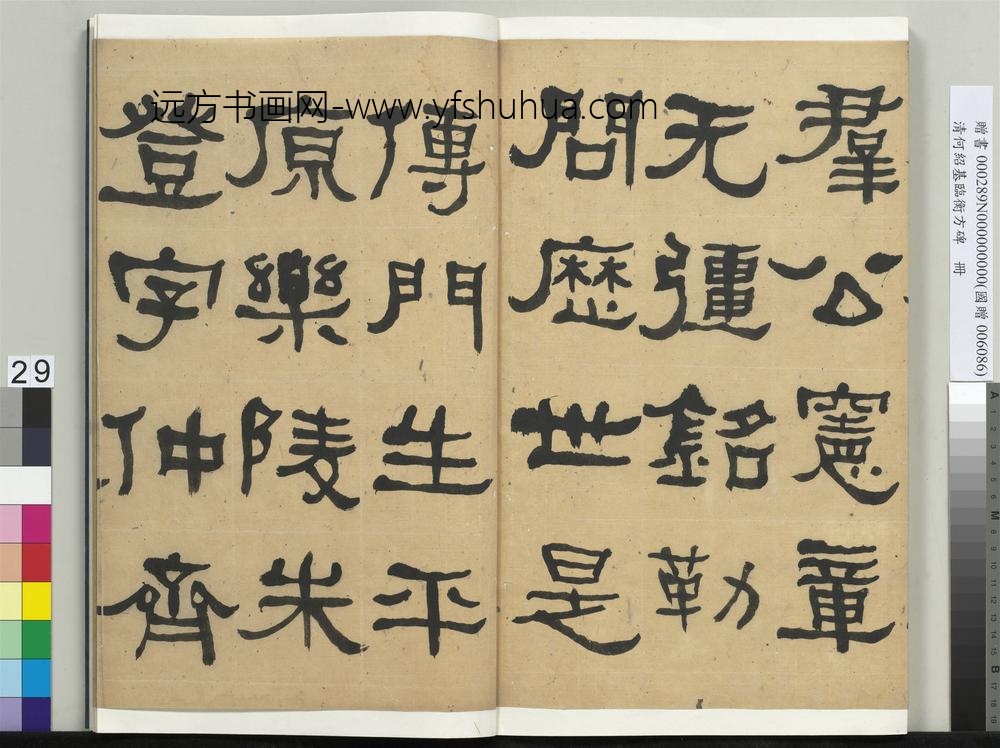 远方书画网-www.yfshuhua.com
羣公憲章
无彊銘勒
問歷世是
傳門生平
原樂陵朱
登字仲齊
贈書 000289N000000000(國贈 006086)
清何紹基臨衡方碑 冊
29
A 1 2 3 4 5 6 M 8 9 10 11 12 13 14 15 B 17 18 19